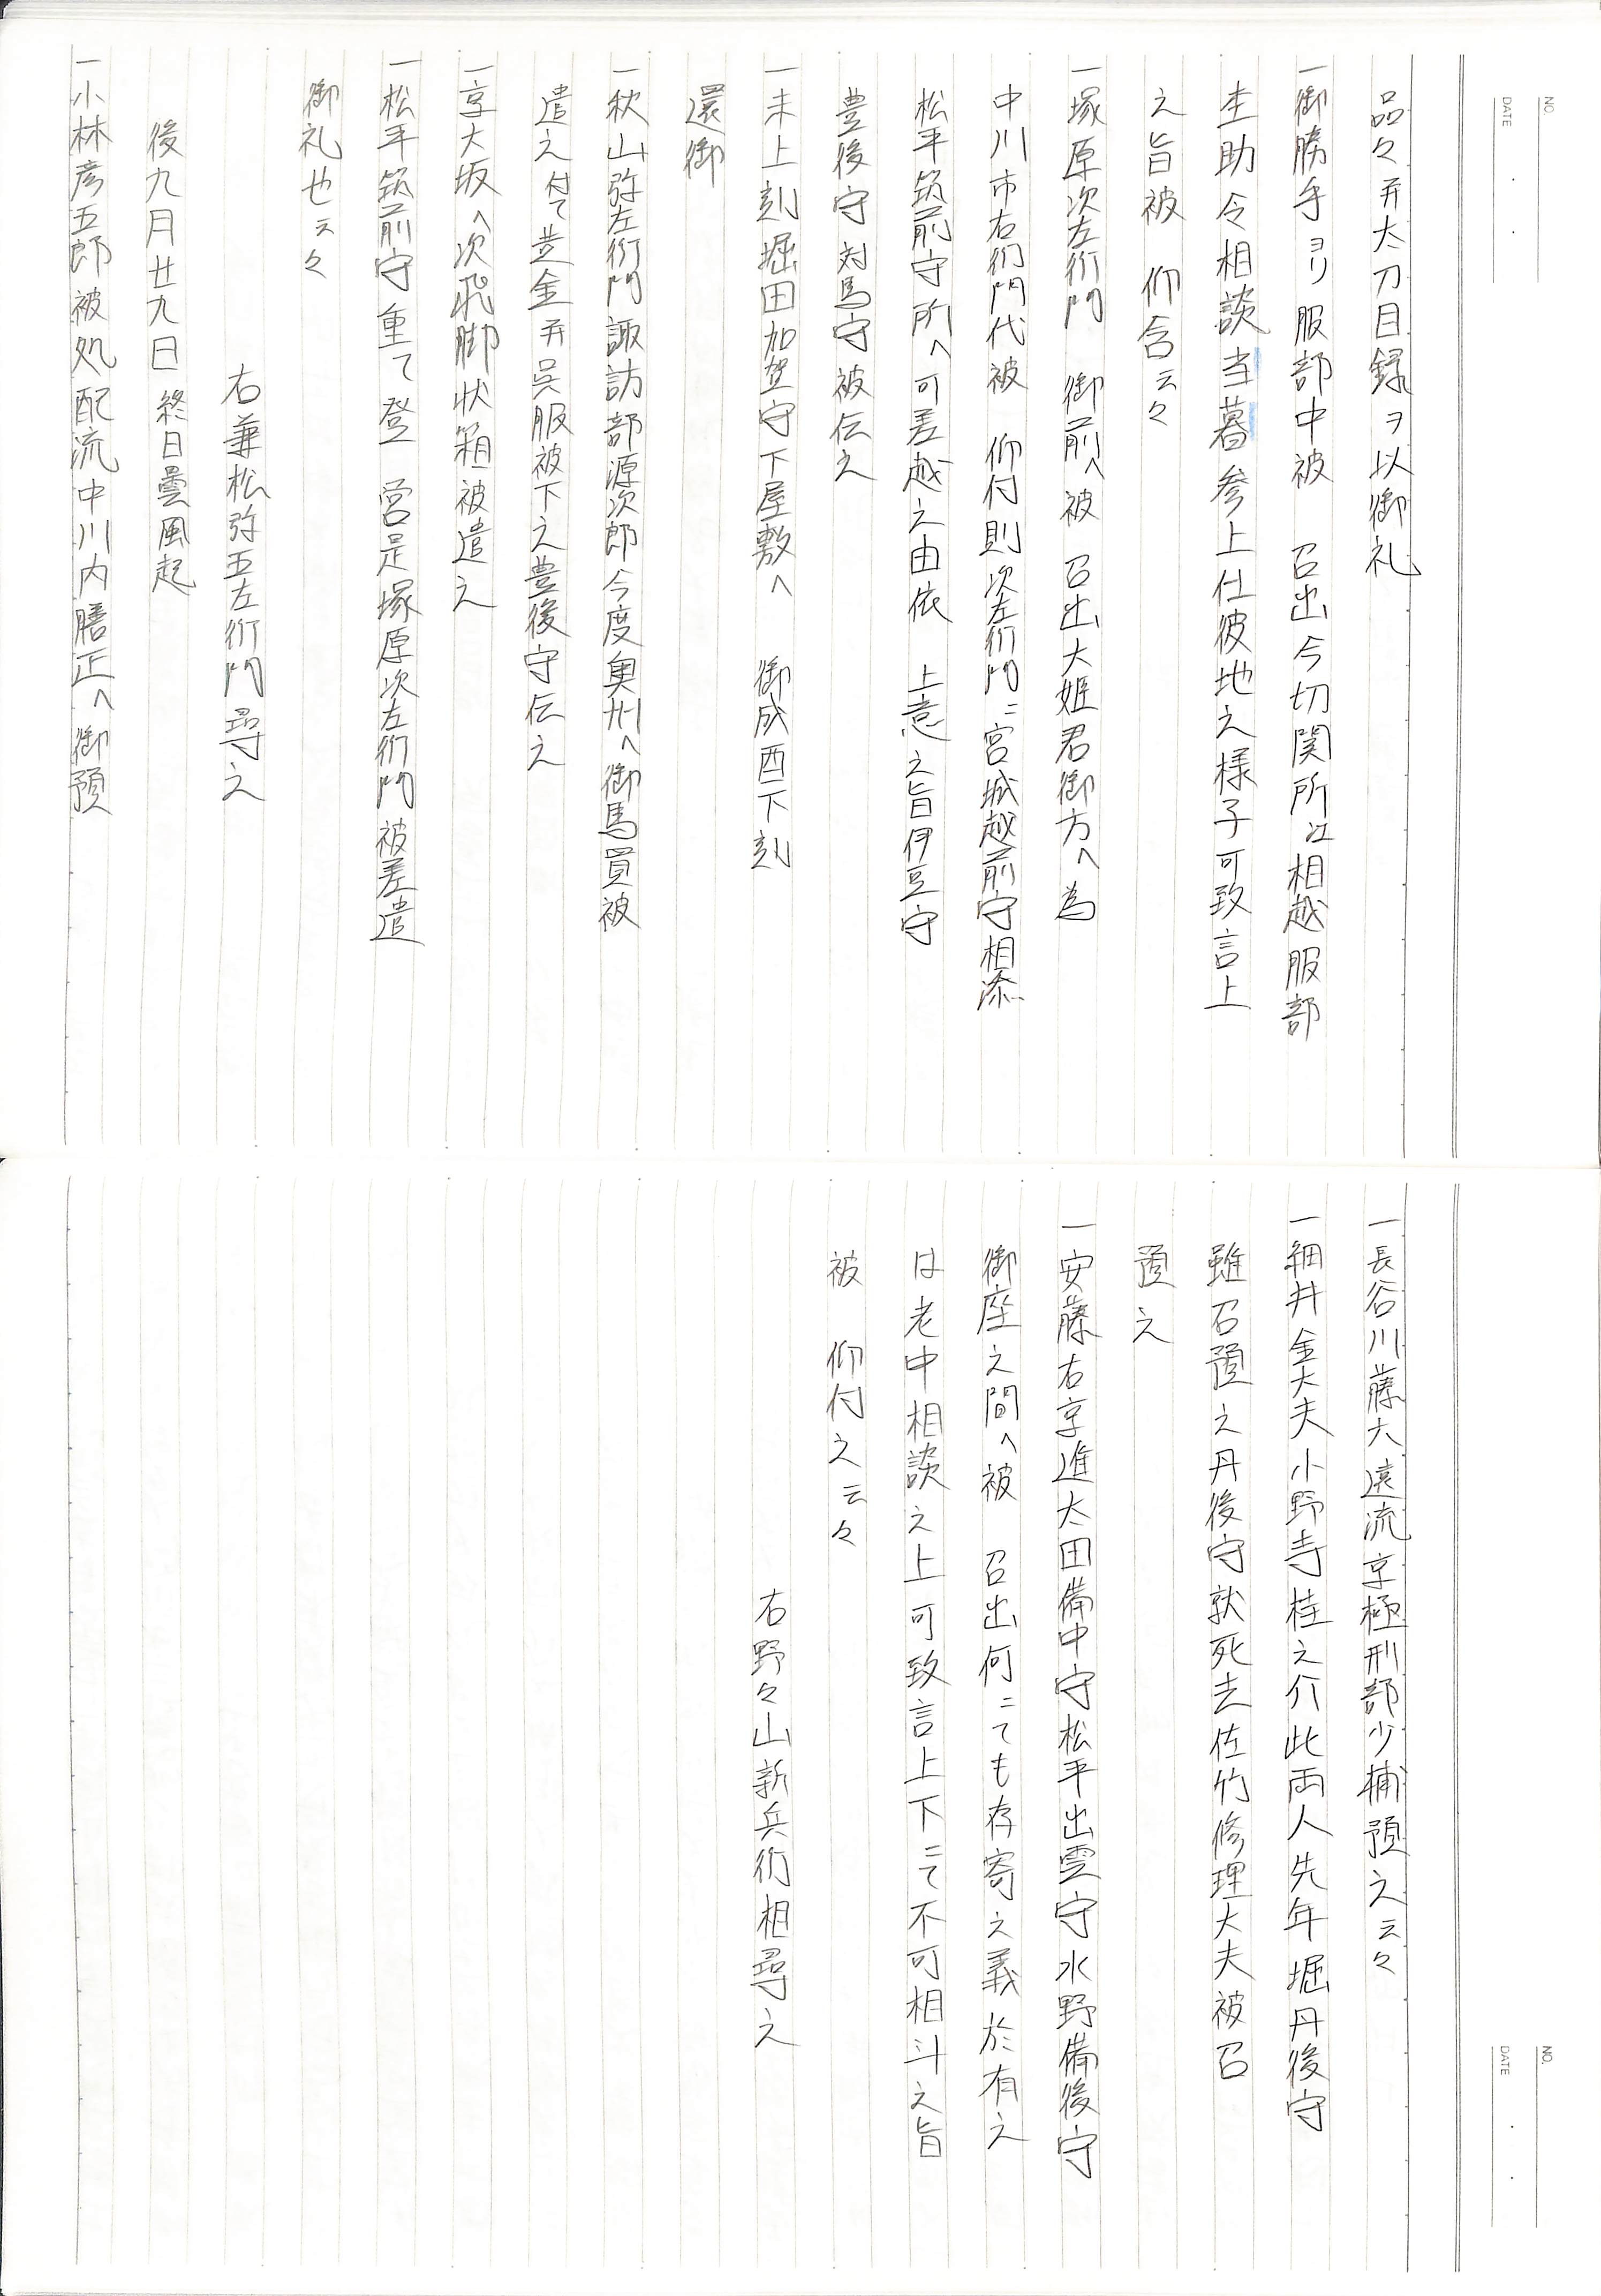 NO.
DATE
品々并太刀目録ヲ以御礼
一御勝手ヨリ服部中被　召出今切関所江相越服部
杢助令相談当暮参上仕彼地之様子可致言上
之旨被　仰含云々
一塚原次左衛門　御前へ被　召出大姫君御方へ為
中川市右衛門代被　仰付則次左衛門ニ宮城越前守相添
松平筑前守所へ可差越之由依　上意之旨伊豆守
豊後守対馬守被伝之
一未上刻堀田加賀守下屋敷へ　御成酉下刻
還御
一秋山弥左衛門諏訪部源次郎今度奥州へ御馬買被
遣之付て黄金并呉服被下之豊後守伝之
一京大坂へ次飛脚状箱被遣之
一松平筑前守重て登　営是塚原次左衛門被差遣
御礼也云々
右兼松弥五左衛門尋之
後九月廿九日　終日曇風起
一小林彦五郎被処配流中川内膳正へ御預
NO.
DATE
一長谷川藤六遠流京極刑部少輔預之云々
一細井金大夫小野寺桂之介此両人先年堀丹後守
雖召預之丹後守就死去佐竹修理大夫被召
預之
一安藤右京進太田備中守松平出雲守水野備後守
御座之間へ被　召出何ニても存寄之義於有之
は老中相談之上可致言上下ニて不可相斗之旨
被　仰付之云々
右野々山新兵衛相尋之